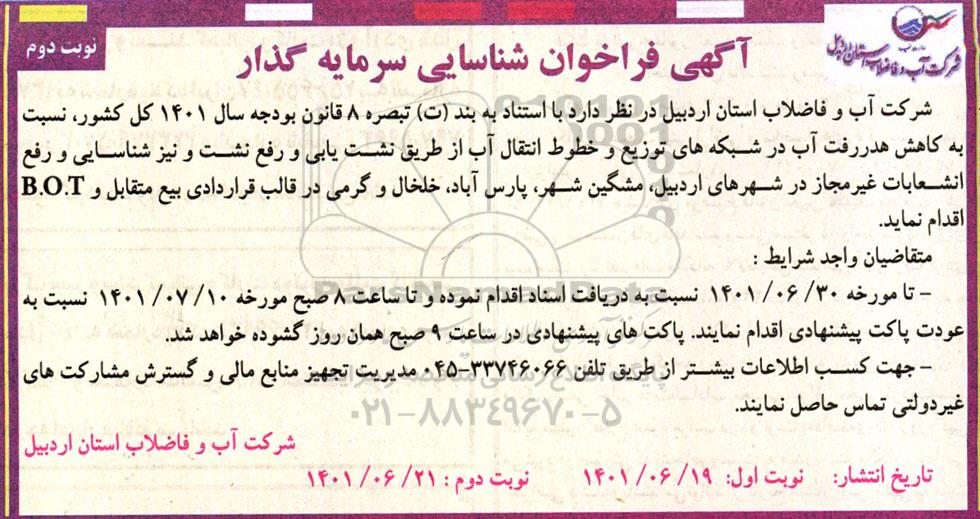 شرکت آب و فاضلاب استان اردبیل
نوبت دوم
آگهی فراخوان شناسایی سرمایه گذار
شرکت آب و فاضلاب استان اردبیل در نظر دارد با استناد به بند (ت) تبصره ۸ قانون بودجه سال ۱۴۰۱ کل کشور، نسبت
به کاهش هدررفت آب در شبکه های توزیع و خطوط انتقال آب از طریق نشت یابی و رفع نشت و نیز شناسایی و رفع
انشعابات غیرمجاز در شهرهای اردبیل، مشگین شهر، پارس آباد، خلخال و گرمی در قالب قراردادی بیع متقابل و B.O.T
اقدام نماید.
متقاضیان واجد شرایط :
- تا مورخه ۱۴۰۱/۰۶/۳۰ نسبت به دریافت اسناد اقدام نموده و تا ساعت ۸ صبح مورخه ۱۴۰۱/۰۷/۱۰ نسبت به
عودت پاکت پیشنهادی اقدام نمایند. پاکت های پیشنهادی در ساعت ۹ صبح همان روز گشوده خواهد شد.
- جهت کسب اطلاعات بیشتر از طریق تلفن ۳۳۷۴۶۰۶۶-۰۴۵ مدیریت تجهیز منابع مالی و گسترش مشارکت های
غیردولتی تماس حاصل نمایند.
۰۲۱-۸۸۳۴۹۶۷۰-۵
شرکت آب و فاضلاب استان اردبیل
تاریخ انتشار: نوبت اول: ۱۴۰۱/۰۶/۱۹ نوبت دوم : ۱۴۰۱/۰۶/۲۱